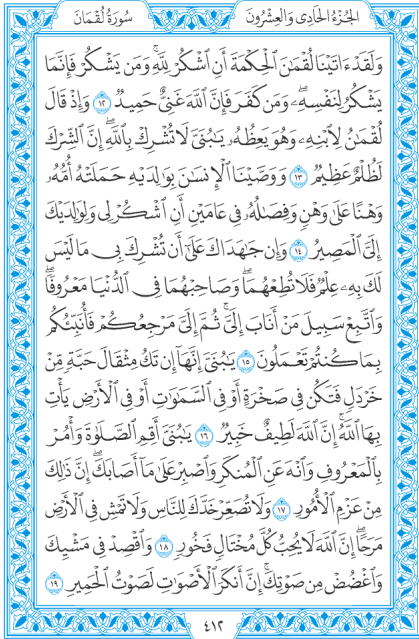 الجُزْءُ الحَادِى وَالعِشْرُونَ سُورَةُ لُقْمَان
وَلَقَدْ ءَاتَيْنَا لُقْمَٰنَ الْحِكْمَةَ أَنِ اشْكُرْ لِلَّهِ ۚ وَمَن يَشْكُرْ فَإِنَّمَا
يَشْكُرُ لِنَفْسِهِۦ ۖ وَمَن كَفَرَ فَإِنَّ اللَّهَ غَنِىٌّ حَمِيدٌ ١٢ وَإِذْ قَالَ
لُقْمَٰنُ لِابْنِهِۦ وَهُوَ يَعِظُهُۥ يَٰبُنَىَّ لَا تُشْرِكْ بِاللَّهِ ۖ إِنَّ الشِّرْكَ
لَظُلْمٌ عَظِيمٌ ١٣ وَوَصَّيْنَا الْإِنسَٰنَ بِوَٰلِدَيْهِ حَمَلَتْهُ أُمُّهُۥ
وَهْنًا عَلَىٰ وَهْنٍ وَفِصَٰلُهُۥ فِى عَامَيْنِ أَنِ اشْكُرْ لِى وَلِوَٰلِدَيْكَ
إِلَىَّ الْمَصِيرُ ١٤ وَإِن جَٰهَدَاكَ عَلَىٰٓ أَن تُشْرِكَ بِى مَا لَيْسَ
لَكَ بِهِۦ عِلْمٌ فَلَا تُطِعْهُمَا ۖ وَصَاحِبْهُمَا فِى الدُّنْيَا مَعْرُوفًا ۖ
وَاتَّبِعْ سَبِيلَ مَنْ أَنَابَ إِلَىَّ ۚ ثُمَّ إِلَىَّ مَرْجِعُكُمْ فَأُنَبِّئُكُم
بِمَا كُنتُمْ تَعْمَلُونَ ١٥ يَٰبُنَىَّ إِنَّهَآ إِن تَكُ مِثْقَالَ حَبَّةٍ مِّنْ
خَرْدَلٍ فَتَكُن فِى صَخْرَةٍ أَوْ فِى السَّمَٰوَٰتِ أَوْ فِى الْأَرْضِ يَأْتِ
بِهَا اللَّهُ ۚ إِنَّ اللَّهَ لَطِيفٌ خَبِيرٌ ١٦ يَٰبُنَىَّ أَقِمِ الصَّلَوٰةَ وَأْمُرْ
بِالْمَعْرُوفِ وَانْهَ عَنِ الْمُنكَرِ وَاصْبِرْ عَلَىٰ مَآ أَصَابَكَ ۖ إِنَّ ذَٰلِكَ
مِنْ عَزْمِ الْأُمُورِ ١٧ وَلَا تُصَعِّرْ خَدَّكَ لِلنَّاسِ وَلَا تَمْشِ فِى الْأَرْضِ
مَرَحًا ۖ إِنَّ اللَّهَ لَا يُحِبُّ كُلَّ مُخْتَالٍ فَخُورٍ ١٨ وَاقْصِدْ فِى مَشْيِكَ
وَاغْضُضْ مِن صَوْتِكَ ۚ إِنَّ أَنكَرَ الْأَصْوَٰتِ لَصَوْتُ الْحَمِيرِ ١٩
٤١٢